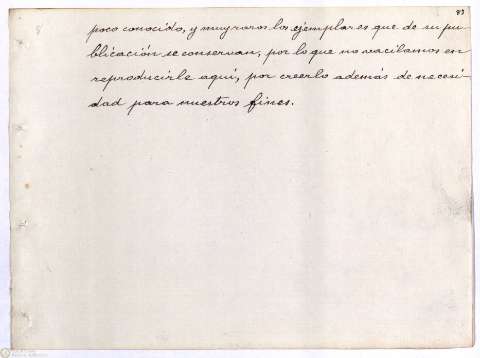 83
8
poco conocido, y muy raros los ejemplares que de su pu-
blicación se conservan, por lo que no vacilamos en
reproducirle aquí, por creerlo además de necesi-
dad para nuestros fines.